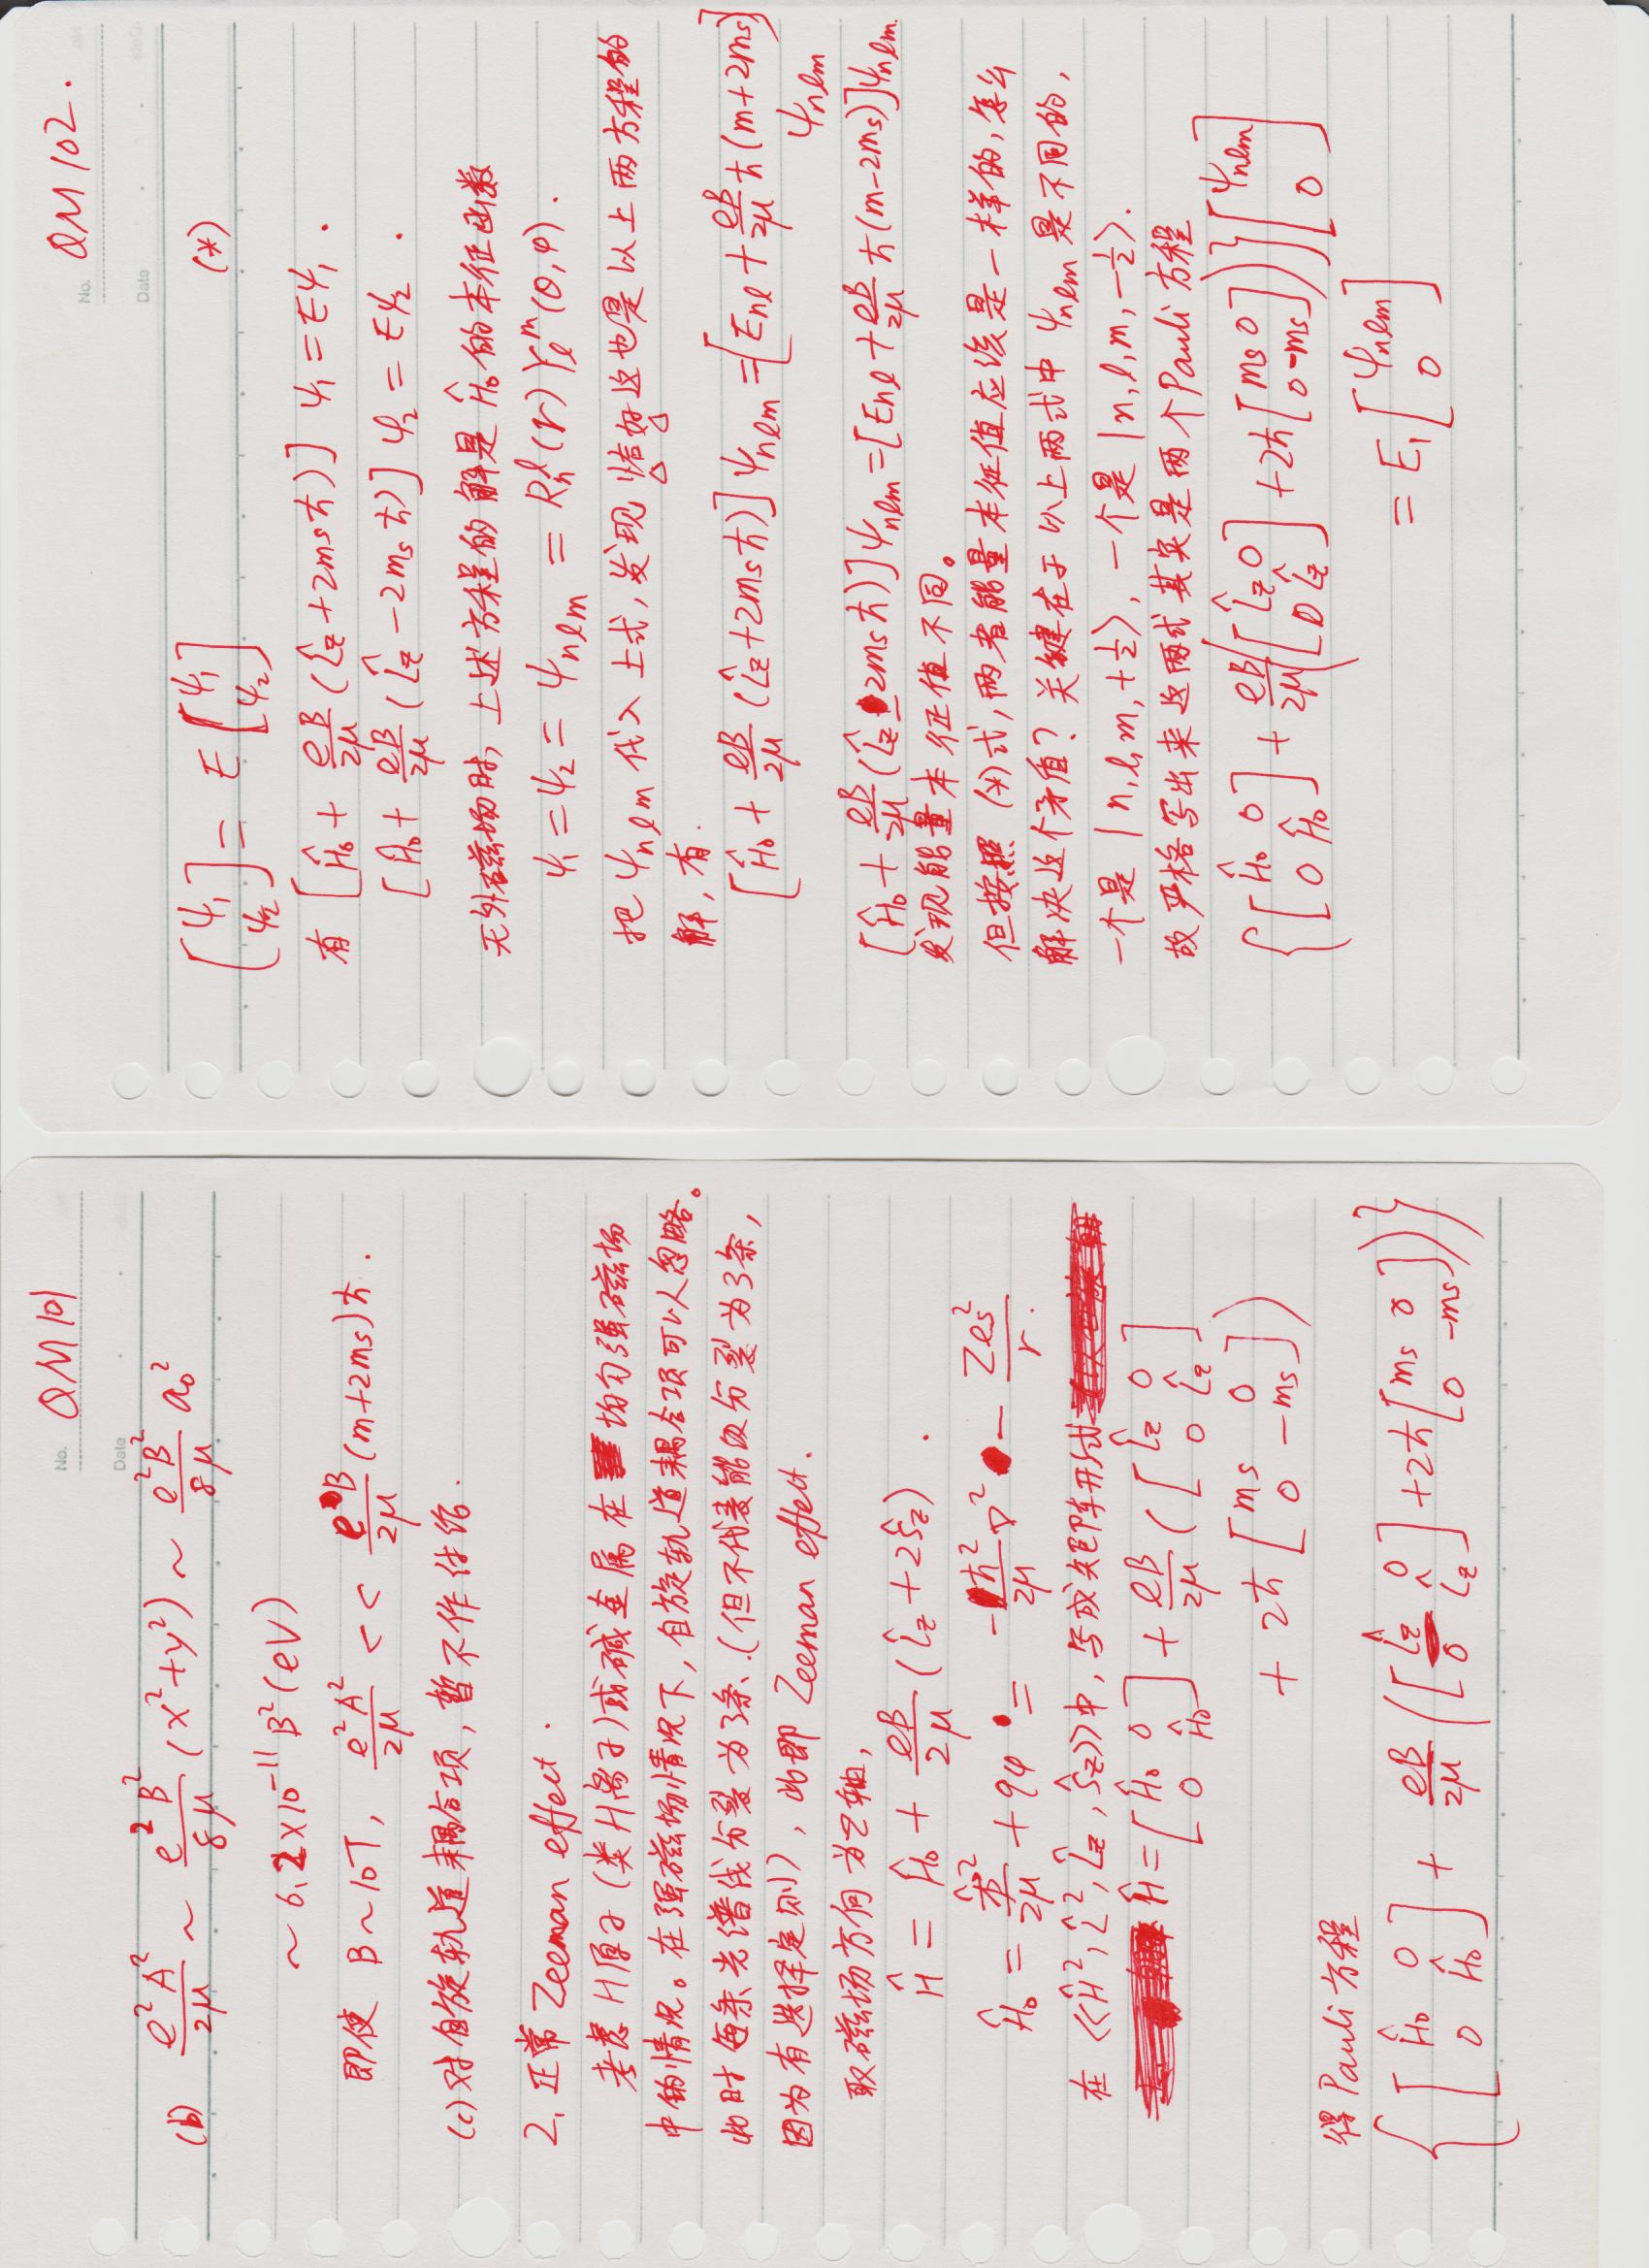 No. QM101
Date
(b) $\frac{e^2A^2}{2\mu} \sim \frac{e^2B^2}{8\mu}(x^2+y^2) \sim \frac{e^2B^2}{8\mu}a_0^2$
$\sim 6.2\times10^{-11}B^2(eV)$
即使 B~10T, $\frac{e^2A^2}{2\mu} << \frac{eB}{2\mu}(m+2m_s)\hbar$.
(c)对自旋轨道耦合项,暂不作估给.
2. 正常 Zeeman effect.
考虑H原子(类H离子)或碱金属在均匀强磁场
中的情况。在强磁场情况下,自旋轨道耦合项可以忽略。
此时每条光谱线分裂为3条.(但不代表能级分裂为3条,
因为有选择定则),此即 Zeeman effect.
取磁场方向为z轴,
$\hat{H} = \hat{H}_0 + \frac{eB}{2\mu}(\hat{L}_z+2\hat{S}_z)$.
$\hat{H}_0 = \frac{\hat{p}^2}{2\mu}+q\varphi = \frac{-\hbar^2}{2\mu}\nabla^2 - \frac{Ze_s^2}{r}$.
在 《$\hat{H}^2,\hat{L}^2,\hat{L}_z,\hat{S}_z$》中,写成矩阵形式
$\hat{H}=\begin{bmatrix}\hat{H}_0 & 0\\0 & \hat{H}_0\end{bmatrix}+\frac{eB}{2\mu}(\begin{bmatrix}\hat{L}_z & 0\\0 & \hat{L}_z\end{bmatrix}$
$+2\hbar\begin{bmatrix}m_s & 0\\0 & -m_s\end{bmatrix})$
得Pauli方程
$\{\begin{bmatrix}\hat{H}_0 & 0\\0 & \hat{H}_0\end{bmatrix}+\frac{eB}{2\mu}(\begin{bmatrix}\hat{L}_z & 0\\0 & \hat{L}_z\end{bmatrix}+2\hbar\begin{bmatrix}m_s & 0\\0 & -m_s\end{bmatrix})\}$
No. QM102.
Date
$\begin{bmatrix}\psi_1\\\psi_2\end{bmatrix}=E\begin{bmatrix}\psi_1\\\psi_2\end{bmatrix}$ (*)
有 $[\hat{H}_0+\frac{eB}{2\mu}(\hat{L}_z+2m_s\hbar)]\psi_1=E\psi_1$.
$[\hat{H}_0+\frac{eB}{2\mu}(\hat{L}_z-2m_s\hbar)]\psi_2=E\psi_2$.
无外磁场时,上述方程的解是$\hat{H}_0$的本征函数
$\psi_1=\psi_2=\psi_{nlm}=R_n^l(r)Y_l^m(\theta,\varphi)$.
把$\psi_{nlm}$代入上式,发现恰好这也是以上两方程的
解,有.
$[\hat{H}_0+\frac{eB}{2\mu}(\hat{L}_z+2m_s\hbar)]\psi_{nlm}=[E_{nl}+\frac{eB}{2\mu}\hbar(m+2m_s)]$
$\psi_{nlm}$
$[\hat{H}_0+\frac{eB}{2\mu}(\hat{L}_z-2m_s\hbar)]\psi_{nlm}=[E_{nl}+\frac{eB}{2\mu}\hbar(m-2m_s)]\psi_{nlm}$.
发现能量本征值不同。
但按照(*)式,两者能量本征值应该是一样的,怎么
解决这个矛盾?关键在于以上两式中$\psi_{nlm}$是不同的,
一个是$|n,l,m,+\frac{1}{2}\rangle$,一个是$|n,l,m,-\frac{1}{2}\rangle$.
故严格写出来这两式其实是两个Pauli方程
$\{\begin{bmatrix}\hat{H}_0 & 0\\0 & \hat{H}_0\end{bmatrix}+\frac{eB}{2\mu}(\begin{bmatrix}\hat{L}_z & 0\\0 & \hat{L}_z\end{bmatrix}+2\hbar\begin{bmatrix}m_s & 0\\0 & -m_s\end{bmatrix})\}\begin{bmatrix}\psi_{nlm}\\0\end{bmatrix}$
$=E_1\begin{bmatrix}\psi_{nlm}\\0\end{bmatrix}$